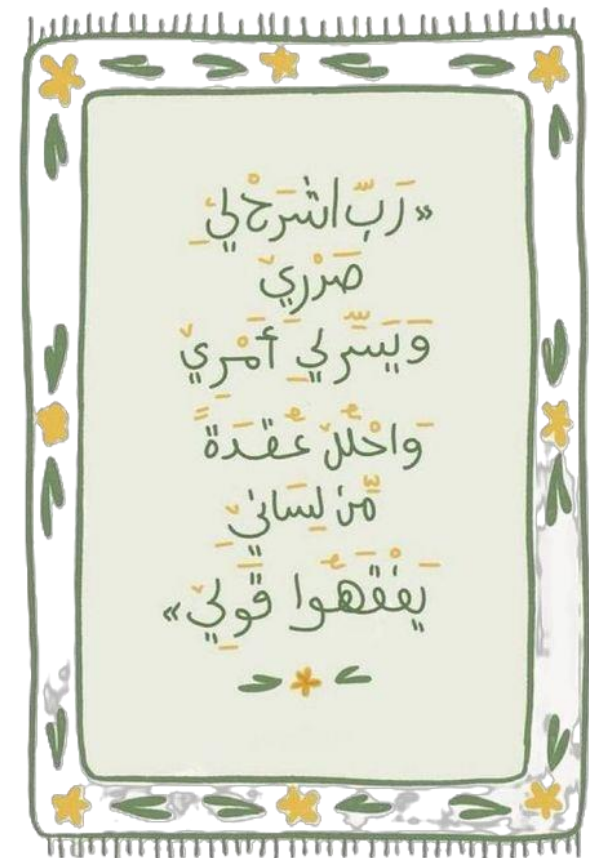 «رَبِّ اشْرَحْ لِي
صَدْرِي
وَيَسِّرْ لِي أَمْرِي
وَاحْلُلْ عُقْدَةً
مِّن لِّسَانِي
يَفْقَهُوا قَوْلِي»